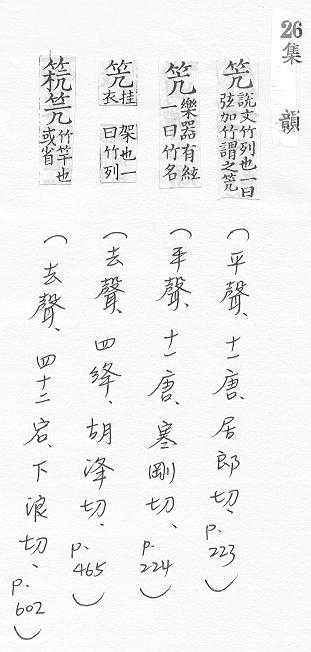 26
集韻
笐 說文竹列也一曰
弦加竹謂之笐
(平聲、十一唐、居郎切、p.223)
笐 樂器有絃
一曰竹名
(平聲、十一唐、寒剛切、p.224)
笐 挂衣架也一
曰竹列
(去聲、四絳、胡洚切、p.465)
笐 竹竿也
或省
(去聲、四十二宕、下浪切、p.602)